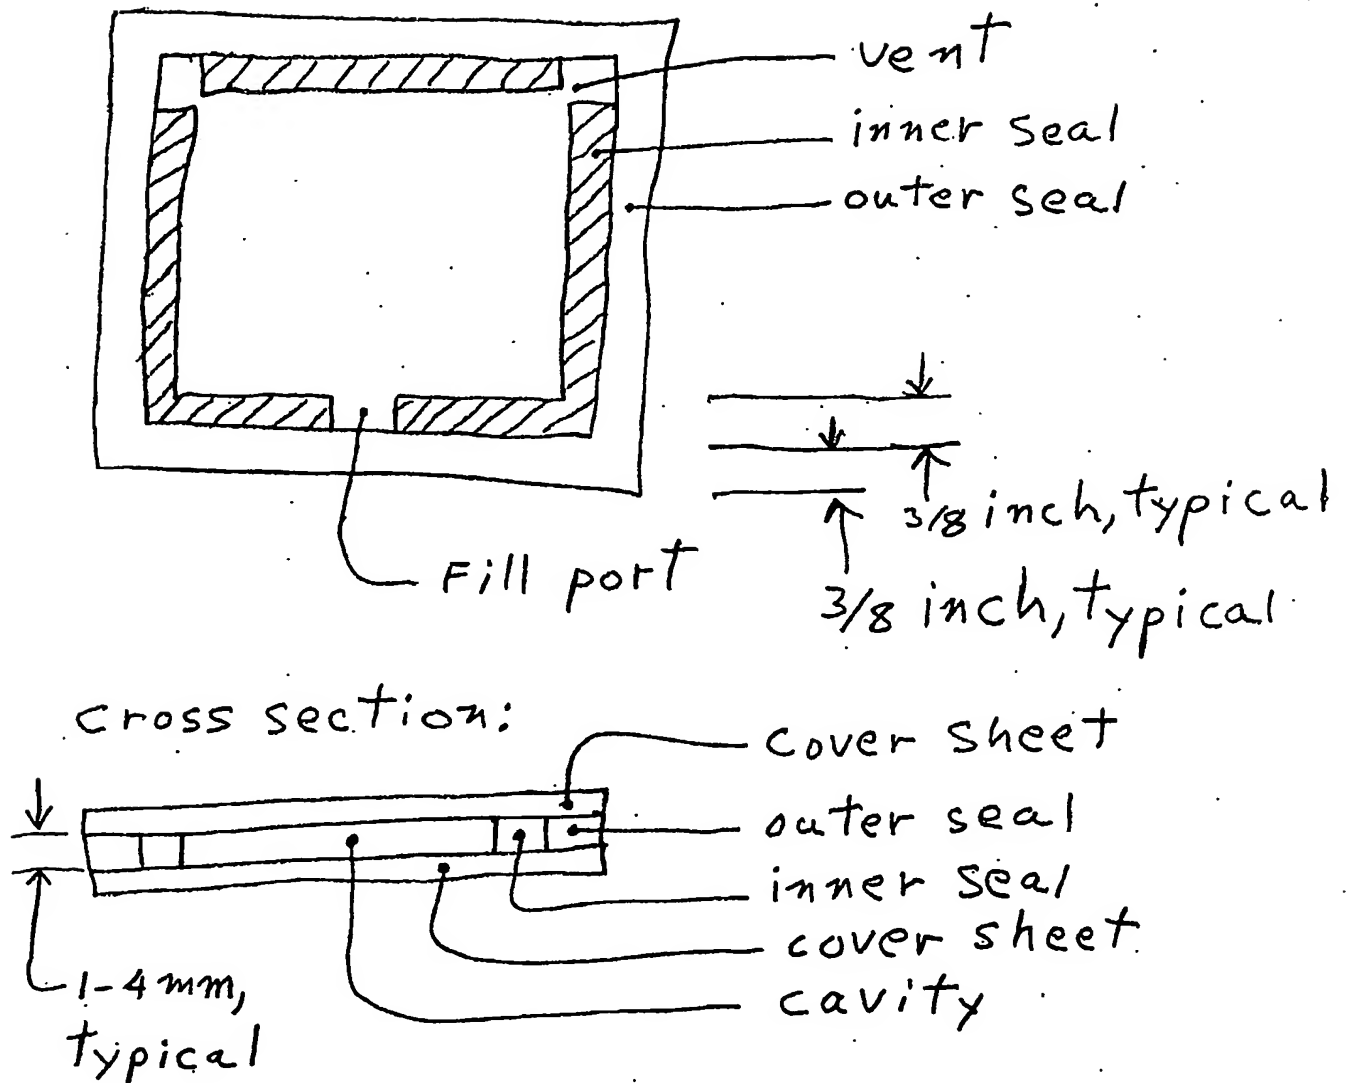 vent
inner seal
outer seal
3/8 inch, typical
3/8 inch, typical
Fill port
cross section:
cover sheet
outer seal
inner seal
cover sheet
cavity
1-4 mm,
typical